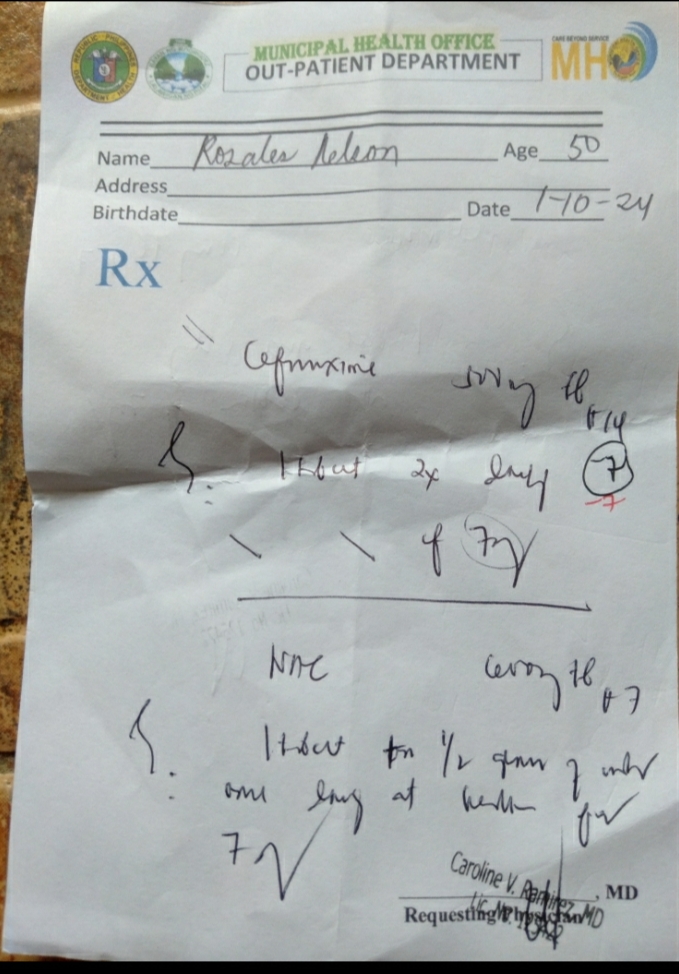 MUNICIPAL HEALTH OFFICE
OUT-PATIENT DEPARTMENT
CARE BEYOND SERVICE
MHO
Name Rosales Nelson Age 50
Address
Birthdate Date 1-10-24
Rx
Cefuroxime 500mg tb
#14
S: 1 tablet 2x daily 7
-7
for 7
NAC 600mg tb
#7
S: 1 tablet in 1/2 glass of water
once daily at bedtime for
7
Caroline V. Ramirez, MD
MD
Requesting Physician